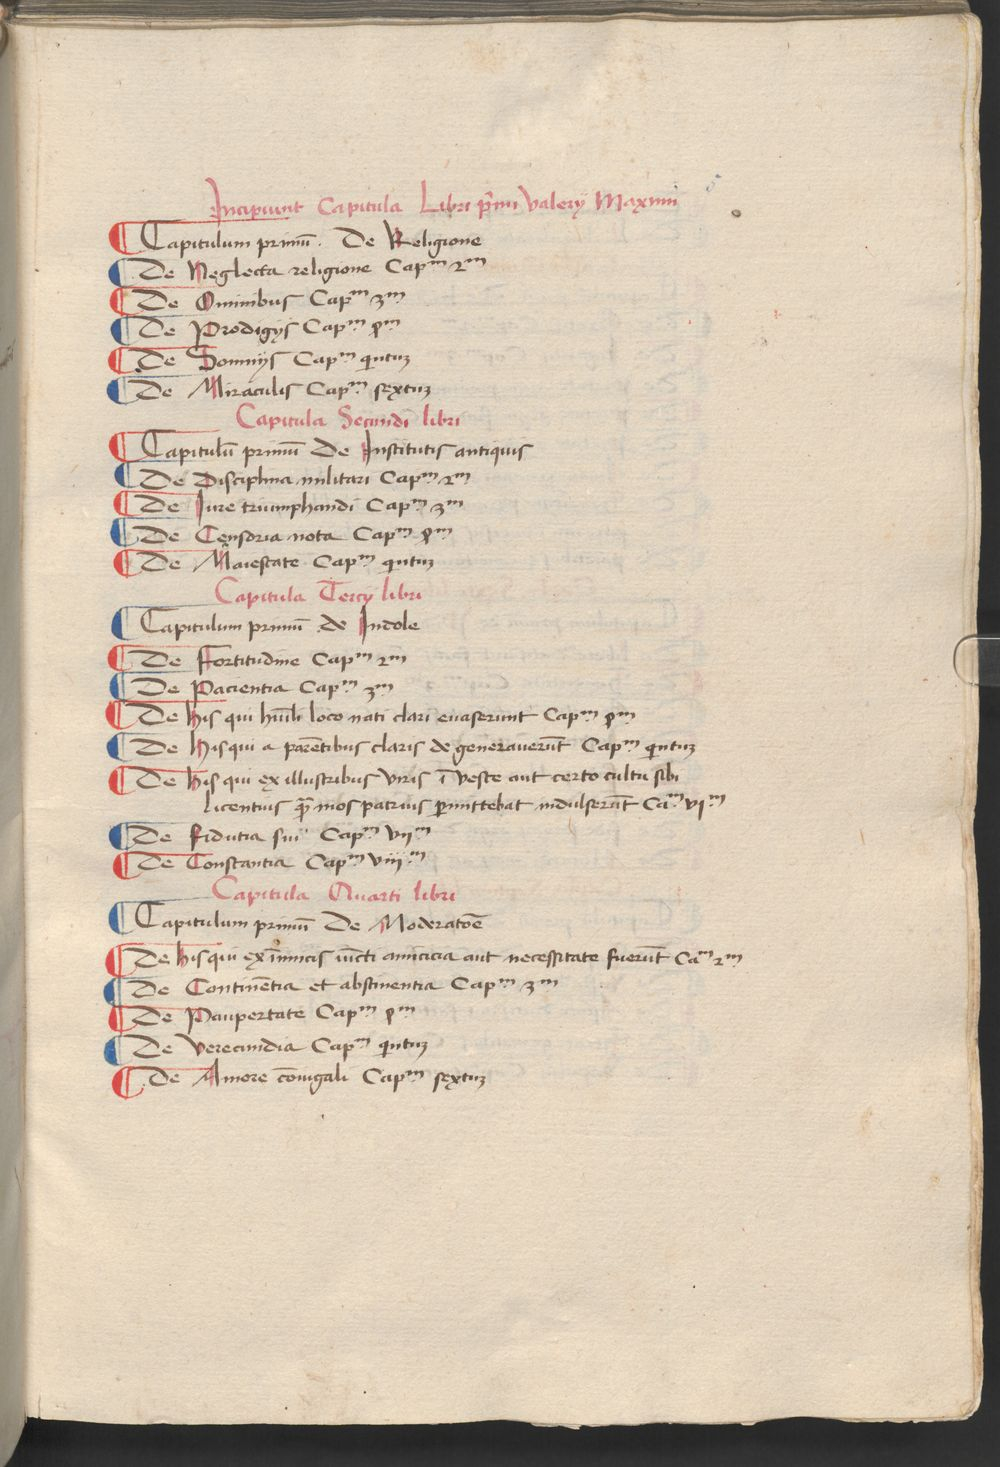 Incipiunt Capitula Libri p̄mi Valerij Maximi
Capitulum primū. De Religione
De Neglecta religione Capᵐ 2ᵐ
De Ominibus Capᵐ 3ᵐ
De Prodigijs Capᵐ 4ᵐ
De Somnijs Capᵐ quintuʒ
De Miraculis Capᵐ sextuʒ
Capitula Secundi libri
Capitulū primū De Institutis antiquis
De Disciplina militari Capᵐ 2ᵐ
De Iure triumphandi Capᵐ 3ᵐ
De Censoria nota Capᵐ 4ᵐ
De Maiestate Capᵐ quintuʒ
Capitula Tercij libri
Capitulum primū de Indole
De Fortitudine Capᵐ 2ᵐ
De Pacientia Capᵐ 3ᵐ
De his qui hūili loco nati clari evaserunt Capᵐ 4ᵐ
De his qui a parētibus claris de generaverūt Capᵐ quintuʒ
De his qui ex illustribus viris ī veste aut certo cultu sibi
licentius quā mos patrius permittebat indulserūt Caᵐ viᵐ
De fidutia sui Capᵐ viiᵐ
De Constantia Capᵐ viiiᵐ
Capitula Quarti libri
Capitulum primū De Moderatōe
De his qui ex inimicis iūcti amicicia aut necessitate fuerūt Caᵐ 2ᵐ
De Continētia et abstinentia Capᵐ 3ᵐ
De Paupertate Capᵐ 4ᵐ
De Verecundia Capᵐ quintuʒ
De Amore cōiugali Capᵐ sextuʒ